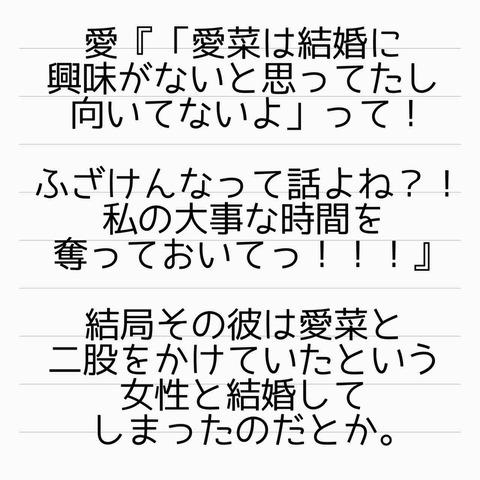 愛『「愛菜は結婚に
興味がないと思ってたし
向いてないよ」って！
ふざけんなって話よね？！
私の大事な時間を
奪っておいてっ！！！』
結局その彼は愛菜と
二股をかけていたという
女性と結婚して
しまったのだとか。